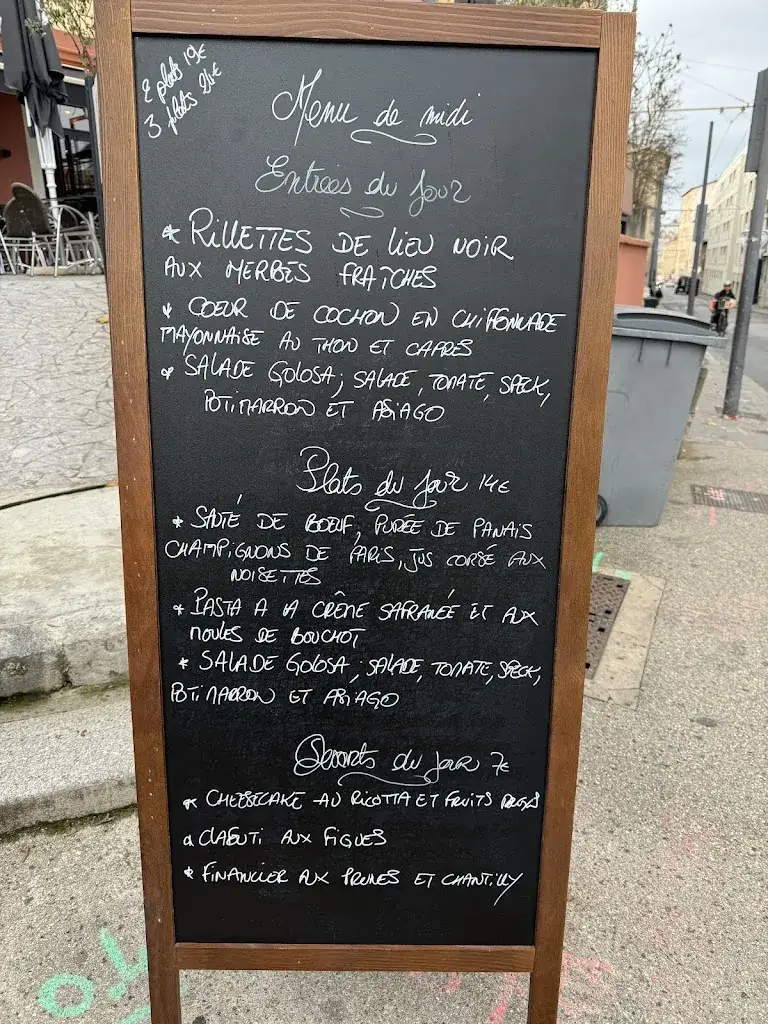 2 plats 19€
3 plats 21€
Menu de midi
Entrées du jour
* RILLETTES DE LIEU NOIR
AUX HERBES FRAÎCHES
* COEUR DE COCHON EN CHIFFONNADE
MAYONNAISE AU THON ET CAPRES
* SALADE GOLOSA ; SALADE, TOMATE, SPECK,
POTIMARRON ET ASIAGO
Plats du jour 14€
* SAUTÉ DE BOEUF, PURÉE DE PANAIS
CHAMPIGNONS DE PARIS, JUS CORSÉ AUX
NOISETTES
* PASTA A LA CRÊME SAFRANÉE ET AUX
MOULES DE BOUCHOT
* SALADE GOLOSA ; SALADE, TOMATE, SPECK,
POTIMARRON ET ASIAGO
Desserts du jour 7€
* CHEESECAKE AU RICOTTA ET FRUITS ROUGES
* CLAFOUTI AUX FIGUES
* FINANCIER AUX PRUNES ET CHANTILLY